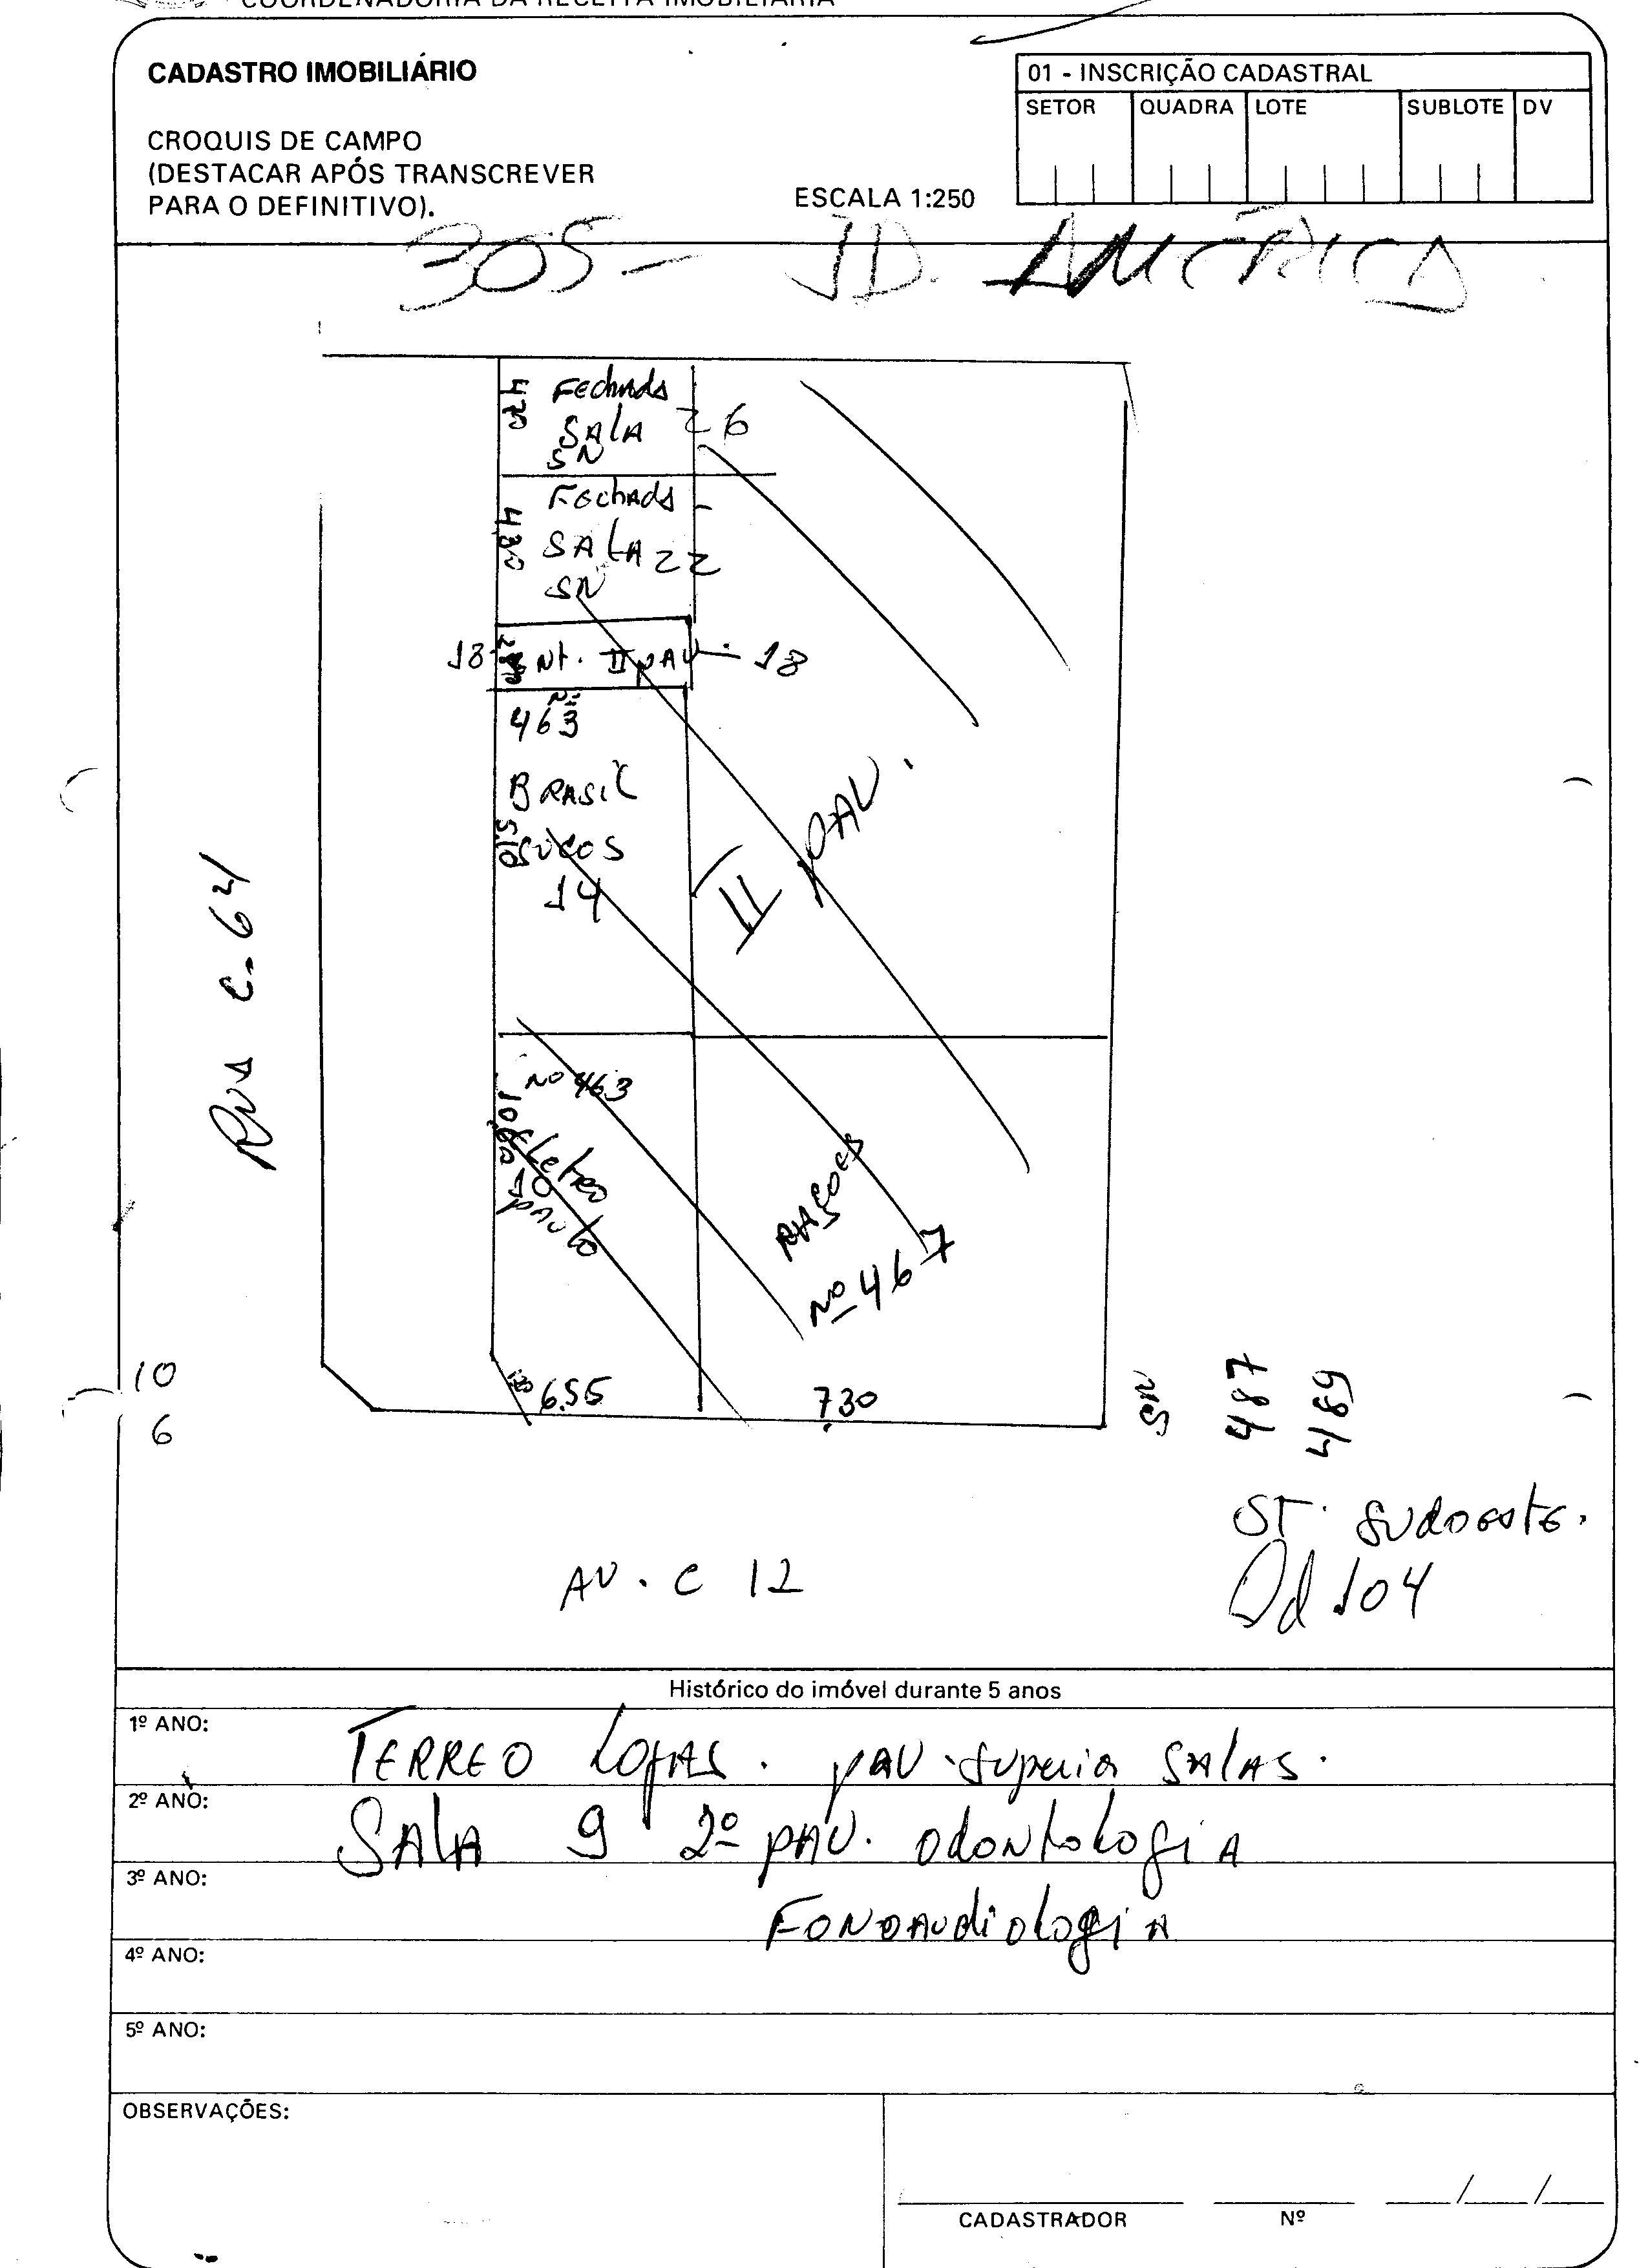 COORDENADORIA DA RECEITA IMOBILIÁRIA
CADASTRO IMOBILIÁRIO
01 - INSCRIÇÃO CADASTRAL
SETOR QUADRA LOTE SUBLOTE DV
CROQUIS DE CAMPO
(DESTACAR APÓS TRANSCREVER
PARA O DEFINITIVO).
ESCALA 1:250
305 - JD. AMÉRICA
470
Fechada
SALA 26
SN
430
Fechada
SALA 22
SN
18 Ent. II PAV - 18
Nº
463
BRASIL
5.10
SUCOS
14
II PAV.
Rua C-64
Nº 463
10.60
Eletro
10
PAULO
RAÇOES
Nº 467
10
6
6.55
7.30
SN
487
489
ST. SUDOESTE.
AV. C 12
Qd 104
Histórico do imóvel durante 5 anos
1º ANO:
TERREO LOJAS. PAV. Superior SALAS.
2º ANO:
SALA 9 2º PAV. Odontologia
3º ANO:
Fonoaudiologia
4º ANO:
5º ANO:
OBSERVAÇÕES:
CADASTRADOR Nº / /